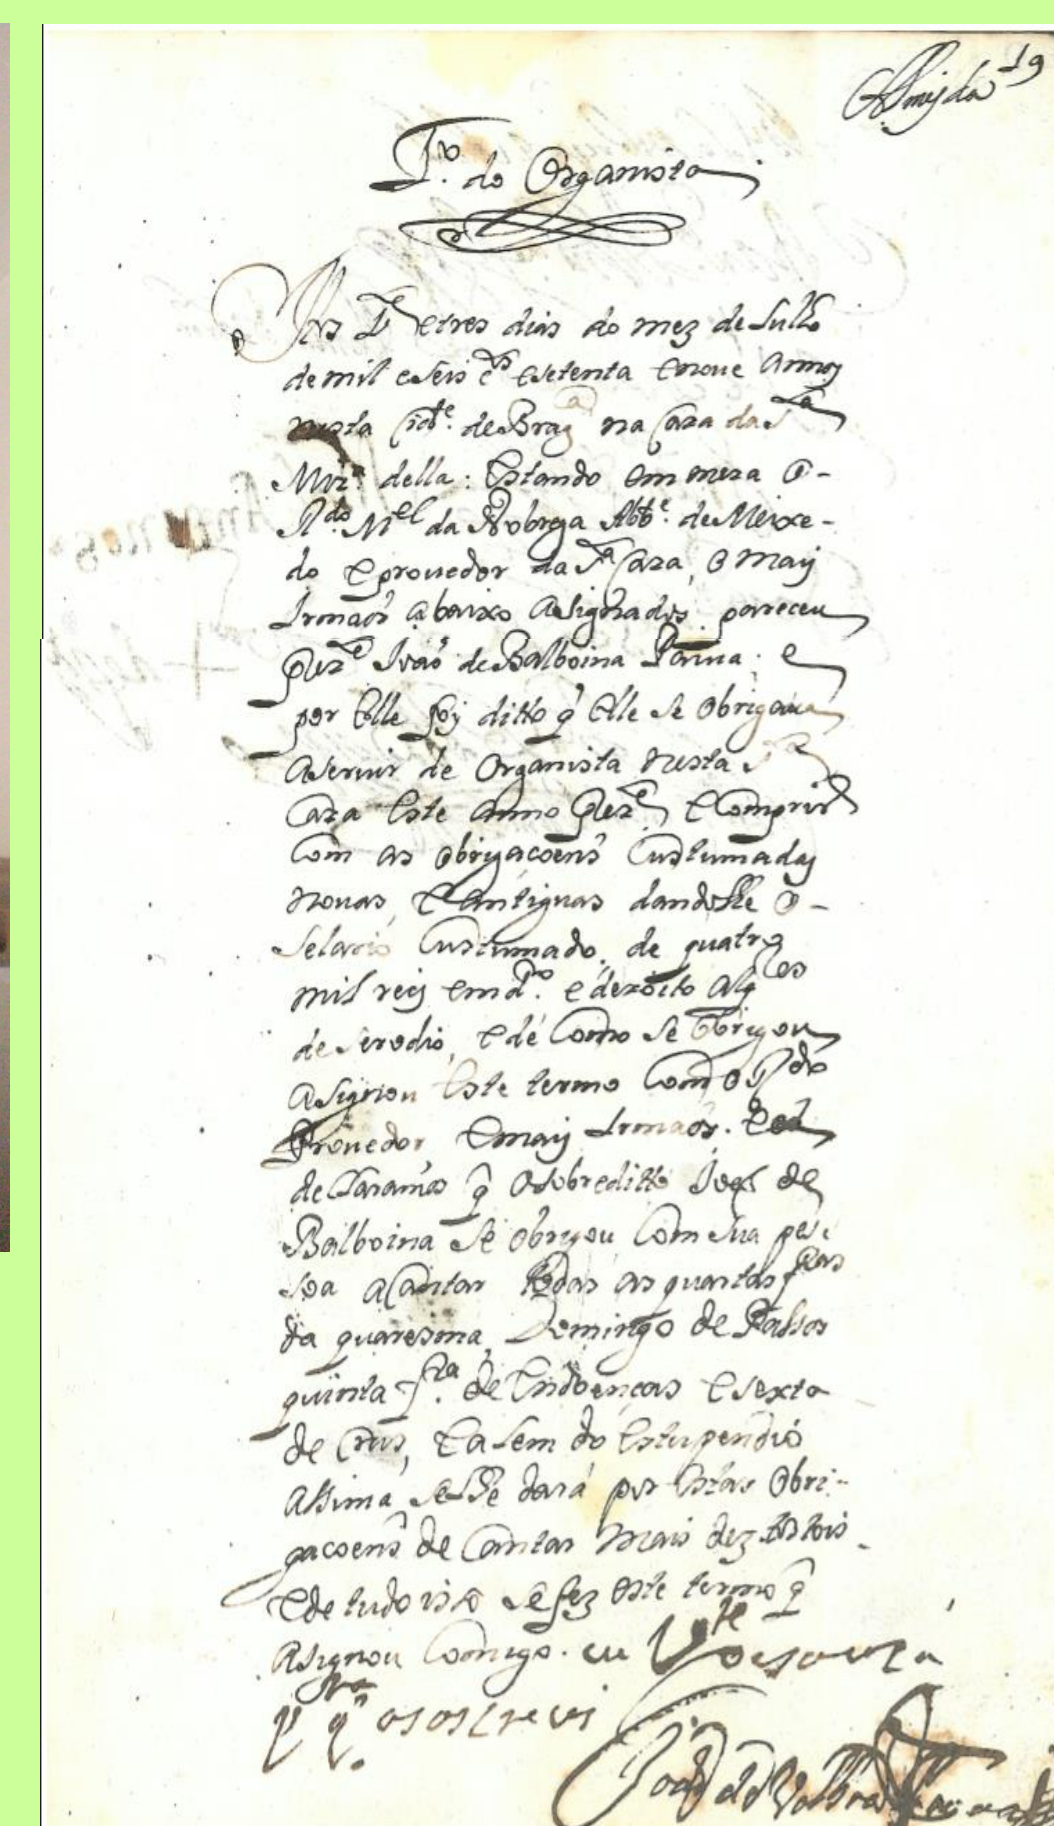 Almejda 19
T.º do Organista
Aos Vte etres dias do mez de Julho
de mil eseis ctos esetenta enove Annos
nesta Cidᵉ. de Braga na Caza da Sᵗᵃ
Mizª. della: Estando em meza o -
Rdo. Mel da Nobrega Abbᵉ. de Meixe-
do e provedor da Sᵗᵃ Caza, e mais
Irmaõs abaixo asignados pareceu
prezᵉ João de Balboina e
por elle foj ditto q̃ elle se obrigaua
aseruir de Organista nesta Sᵗᵃ
Caza este anno prezᵉ, e Comprir
Com as obrigaçoens Custumadas
nouas, e antiguas dandosse o -
Selario Custumado, de quatro
mil reis em drº. e dezoito Alqes
de serodio, e de Como se obrigou
asignou este termo Com o Rdo
Provedor, e mais Irmaõs.
declaramos q̃ o sobreditto João de
Balboina se obrigou Com sua pes
soa a Cantar todas as quartas fras
da quaresma, Domingo de Passos
quinta frª. de Endoenças e sexta
de Crus, e alem do estupendio
assima se lhe dará por estas obri-
gacoens de Cantar mais dez tostois -
e de tudo isto se fez este termo q̃
asignou Comigo. eu Vte de souza
q̃ o sosCrevi
João de Valboa